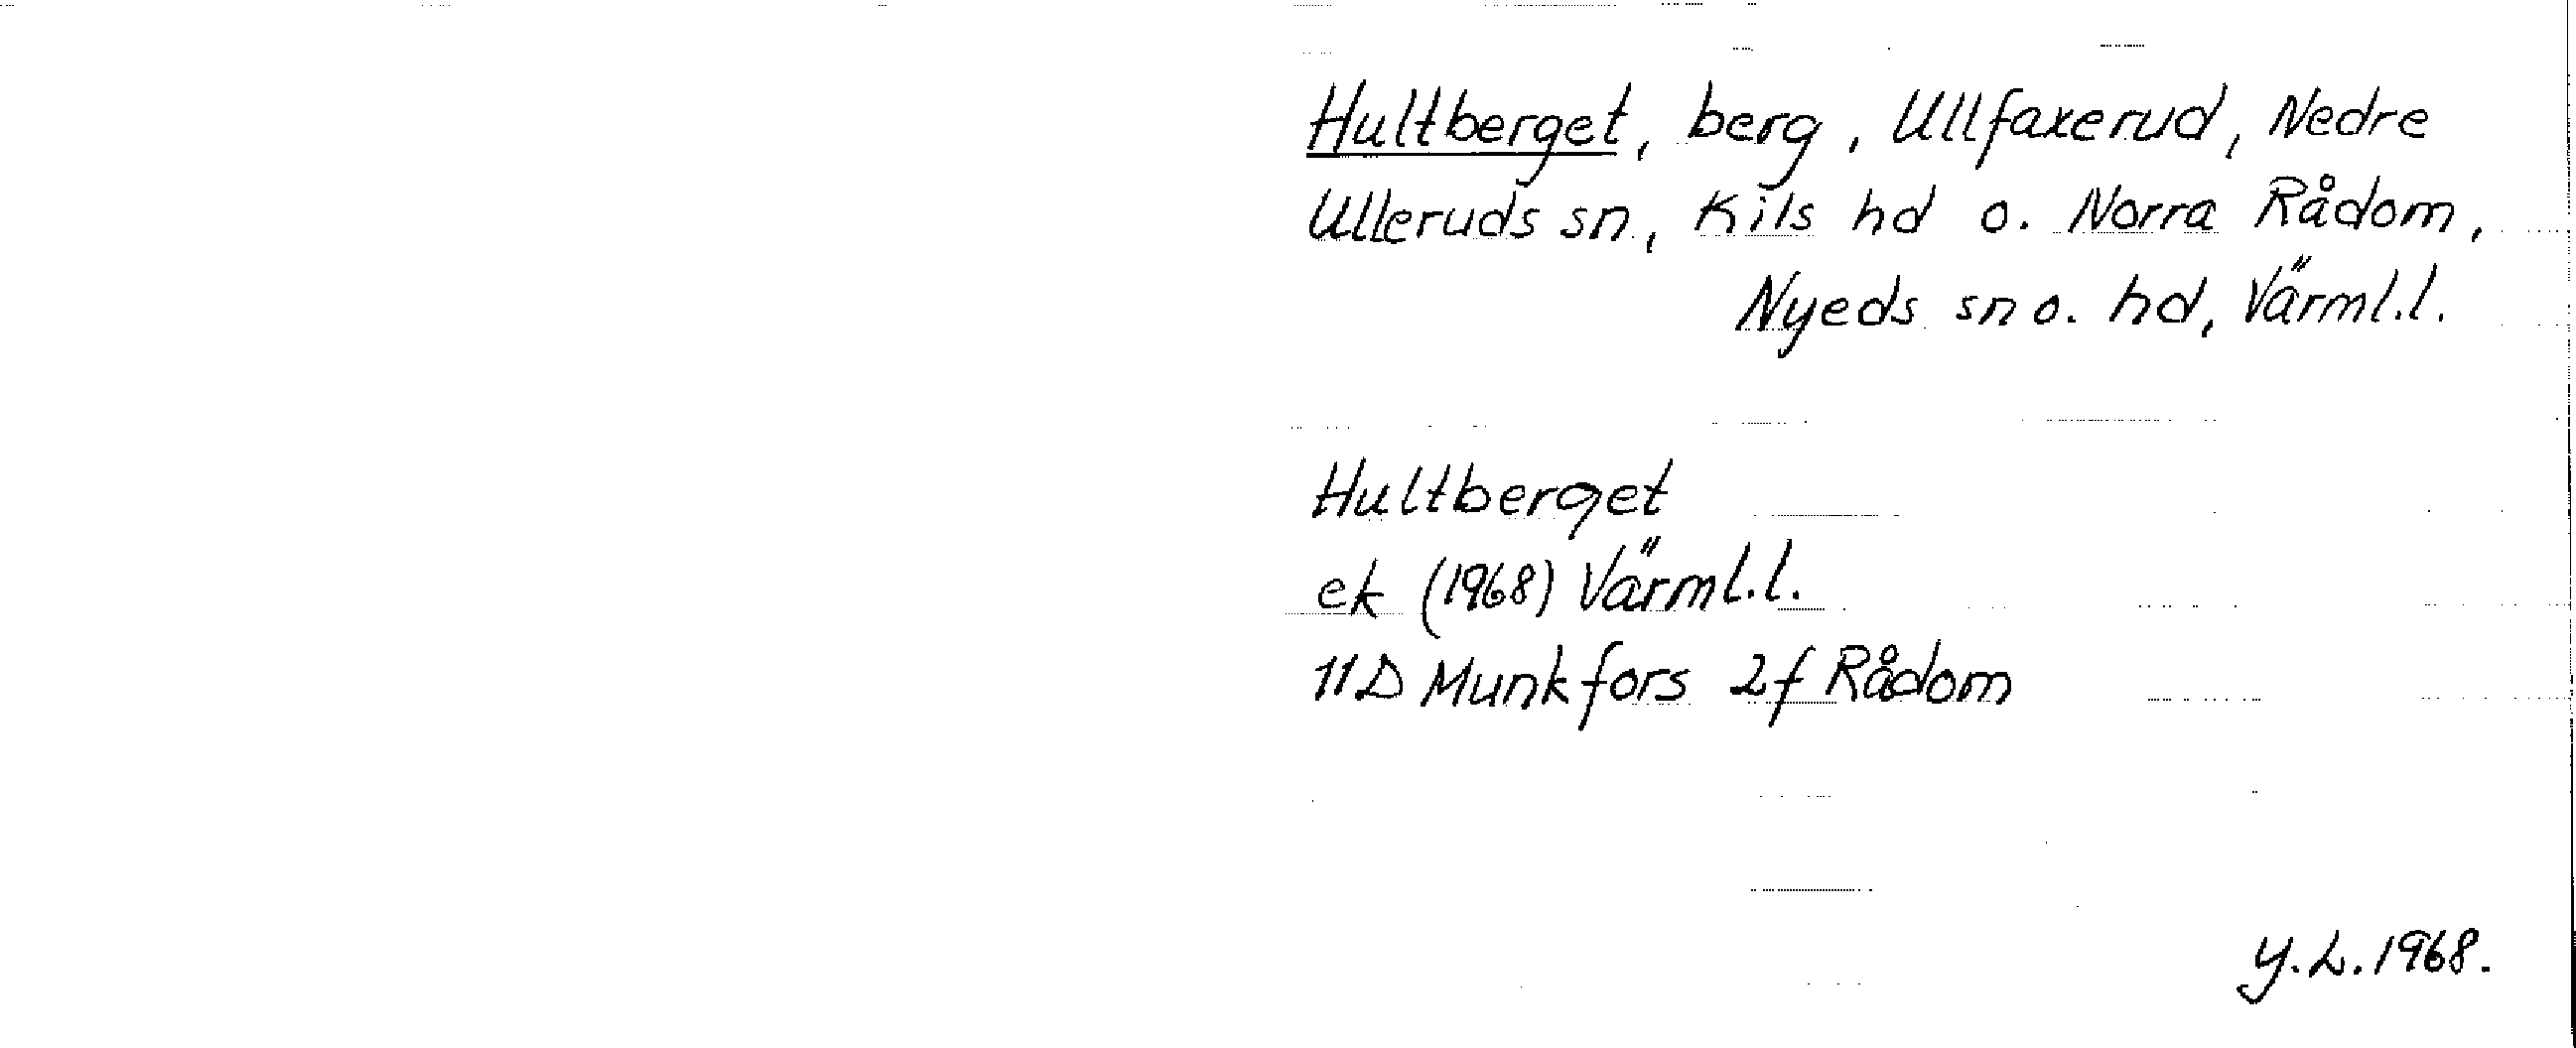 Hultberget, berg, Ullfaxerud, Nedre
Ulleruds sn, Kils hd o. Norra Rådom,
Nyeds sn o. hd, Värml.l.
Hultberget
ek (1968) Värml.l.
11D Munkfors 2f Rådom
Y.L.1968.